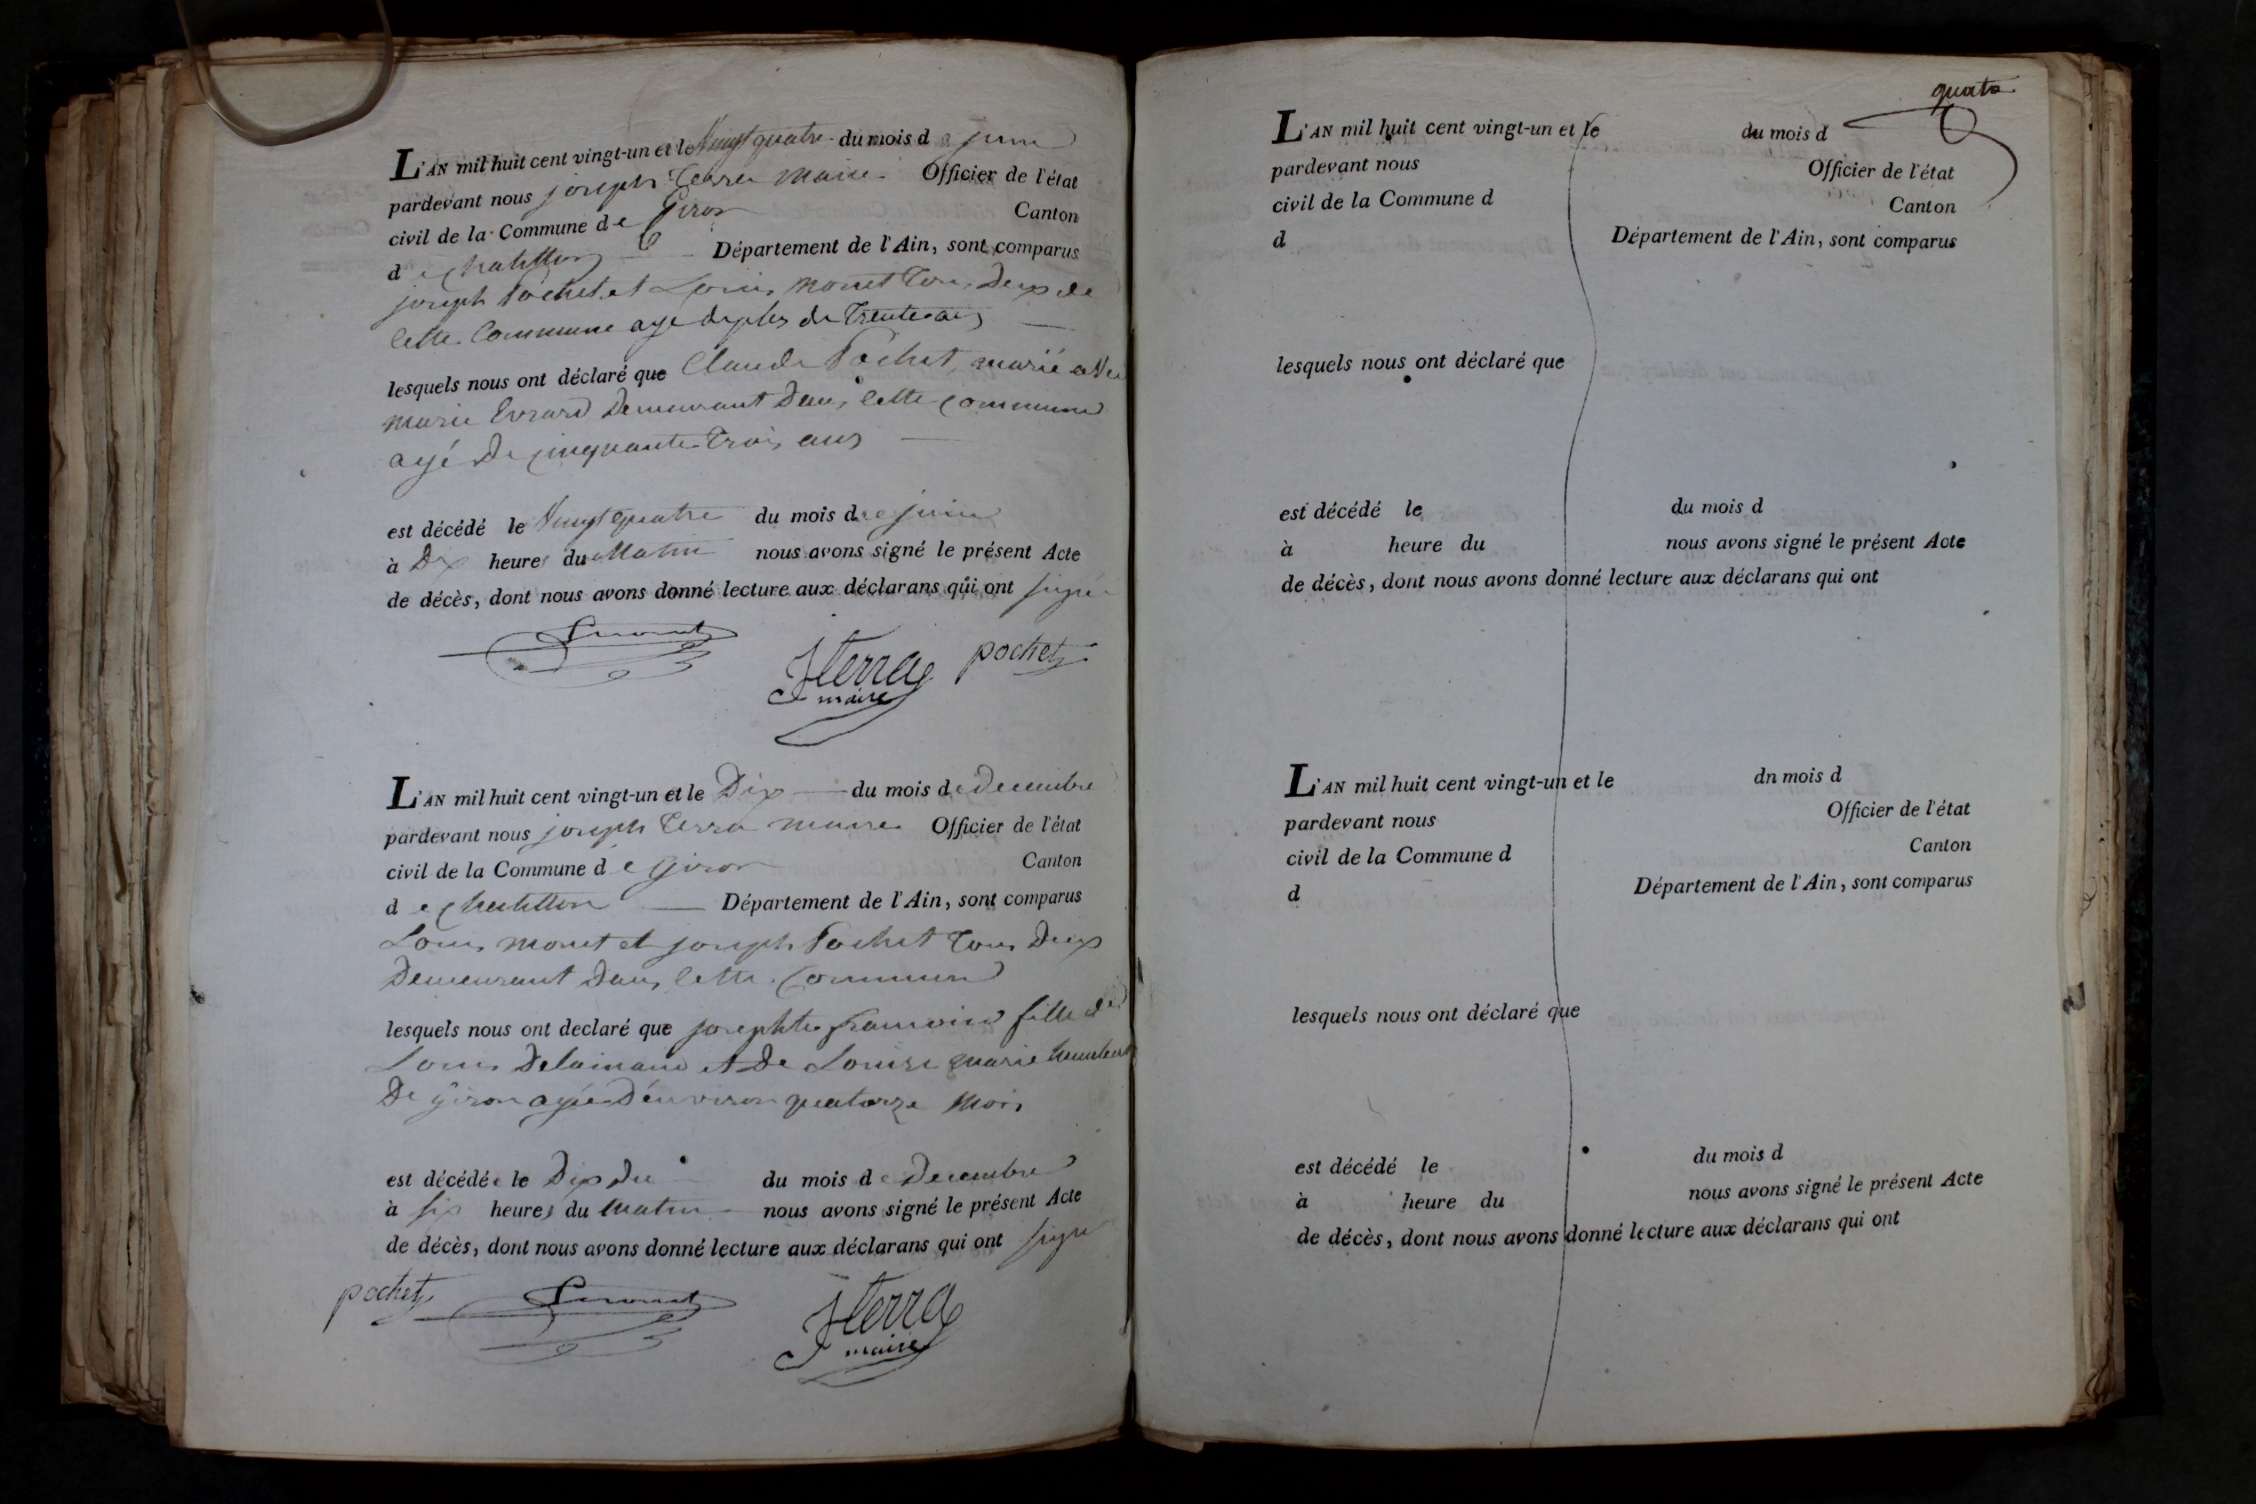 L'AN mil huit cent vingt-un et le Vingt quatre du mois de juin
pardevant nous joseph Terra Maire Officier de l'état
civil de la Commune de Giron Canton
de chatillon Département de l'Ain, sont comparus
joseph Pochet et Louis monet Tous Deux de
Cette Commune agé de plus de Trente ans
lesquels nous ont déclaré que Claude Pochet marié avec
marie Evrard Demeurant Dans Cette Commune
agé De cinquante Trois ans
est décédé le Vingt quatre du mois de juin
à Dix heures du Matin nous avons signé le présent Acte
de décès, dont nous avons donné lecture aux déclarans qui ont signé
Lmonet
JTerra pochet
maire
L'AN mil huit cent vingt-un et le Dix du mois de Decembre
pardevant nous joseph Terra maire Officier de l'état
civil de la Commune de Giron Canton
de chatillon Département de l'Ain, sont comparus
Louis monet et joseph Pochet Tous Deux
Demeurant Dans Cette Commune
lesquels nous ont declaré que josephte françoise fille de
Louis Delainaud et De Louise marie humbert
De giron agée D'environ quatorze Mois
est décédée le Dix Du du mois de Decembre
à six heures du Matin nous avons signé le présent Acte
de décès, dont nous avons donné lecture aux déclarans qui ont signé
pochet Lmonet JTerra
maire
quatre
L'AN mil huit cent vingt-un et le du mois d
pardevant nous Officier de l'état
civil de la Commune d Canton
d Département de l'Ain, sont comparus
lesquels nous ont déclaré que
est décédé le du mois d
à heure du nous avons signé le présent Acte
de décès, dont nous avons donné lecture aux déclarans qui ont
L'AN mil huit cent vingt-un et le dn mois d
pardevant nous Officier de l'état
civil de la Commune d Canton
d Département de l'Ain, sont comparus
lesquels nous ont déclaré que
est décédé le du mois d
à heure du nous avons signé le présent Acte
de décès, dont nous avons donné lecture aux déclarans qui ont